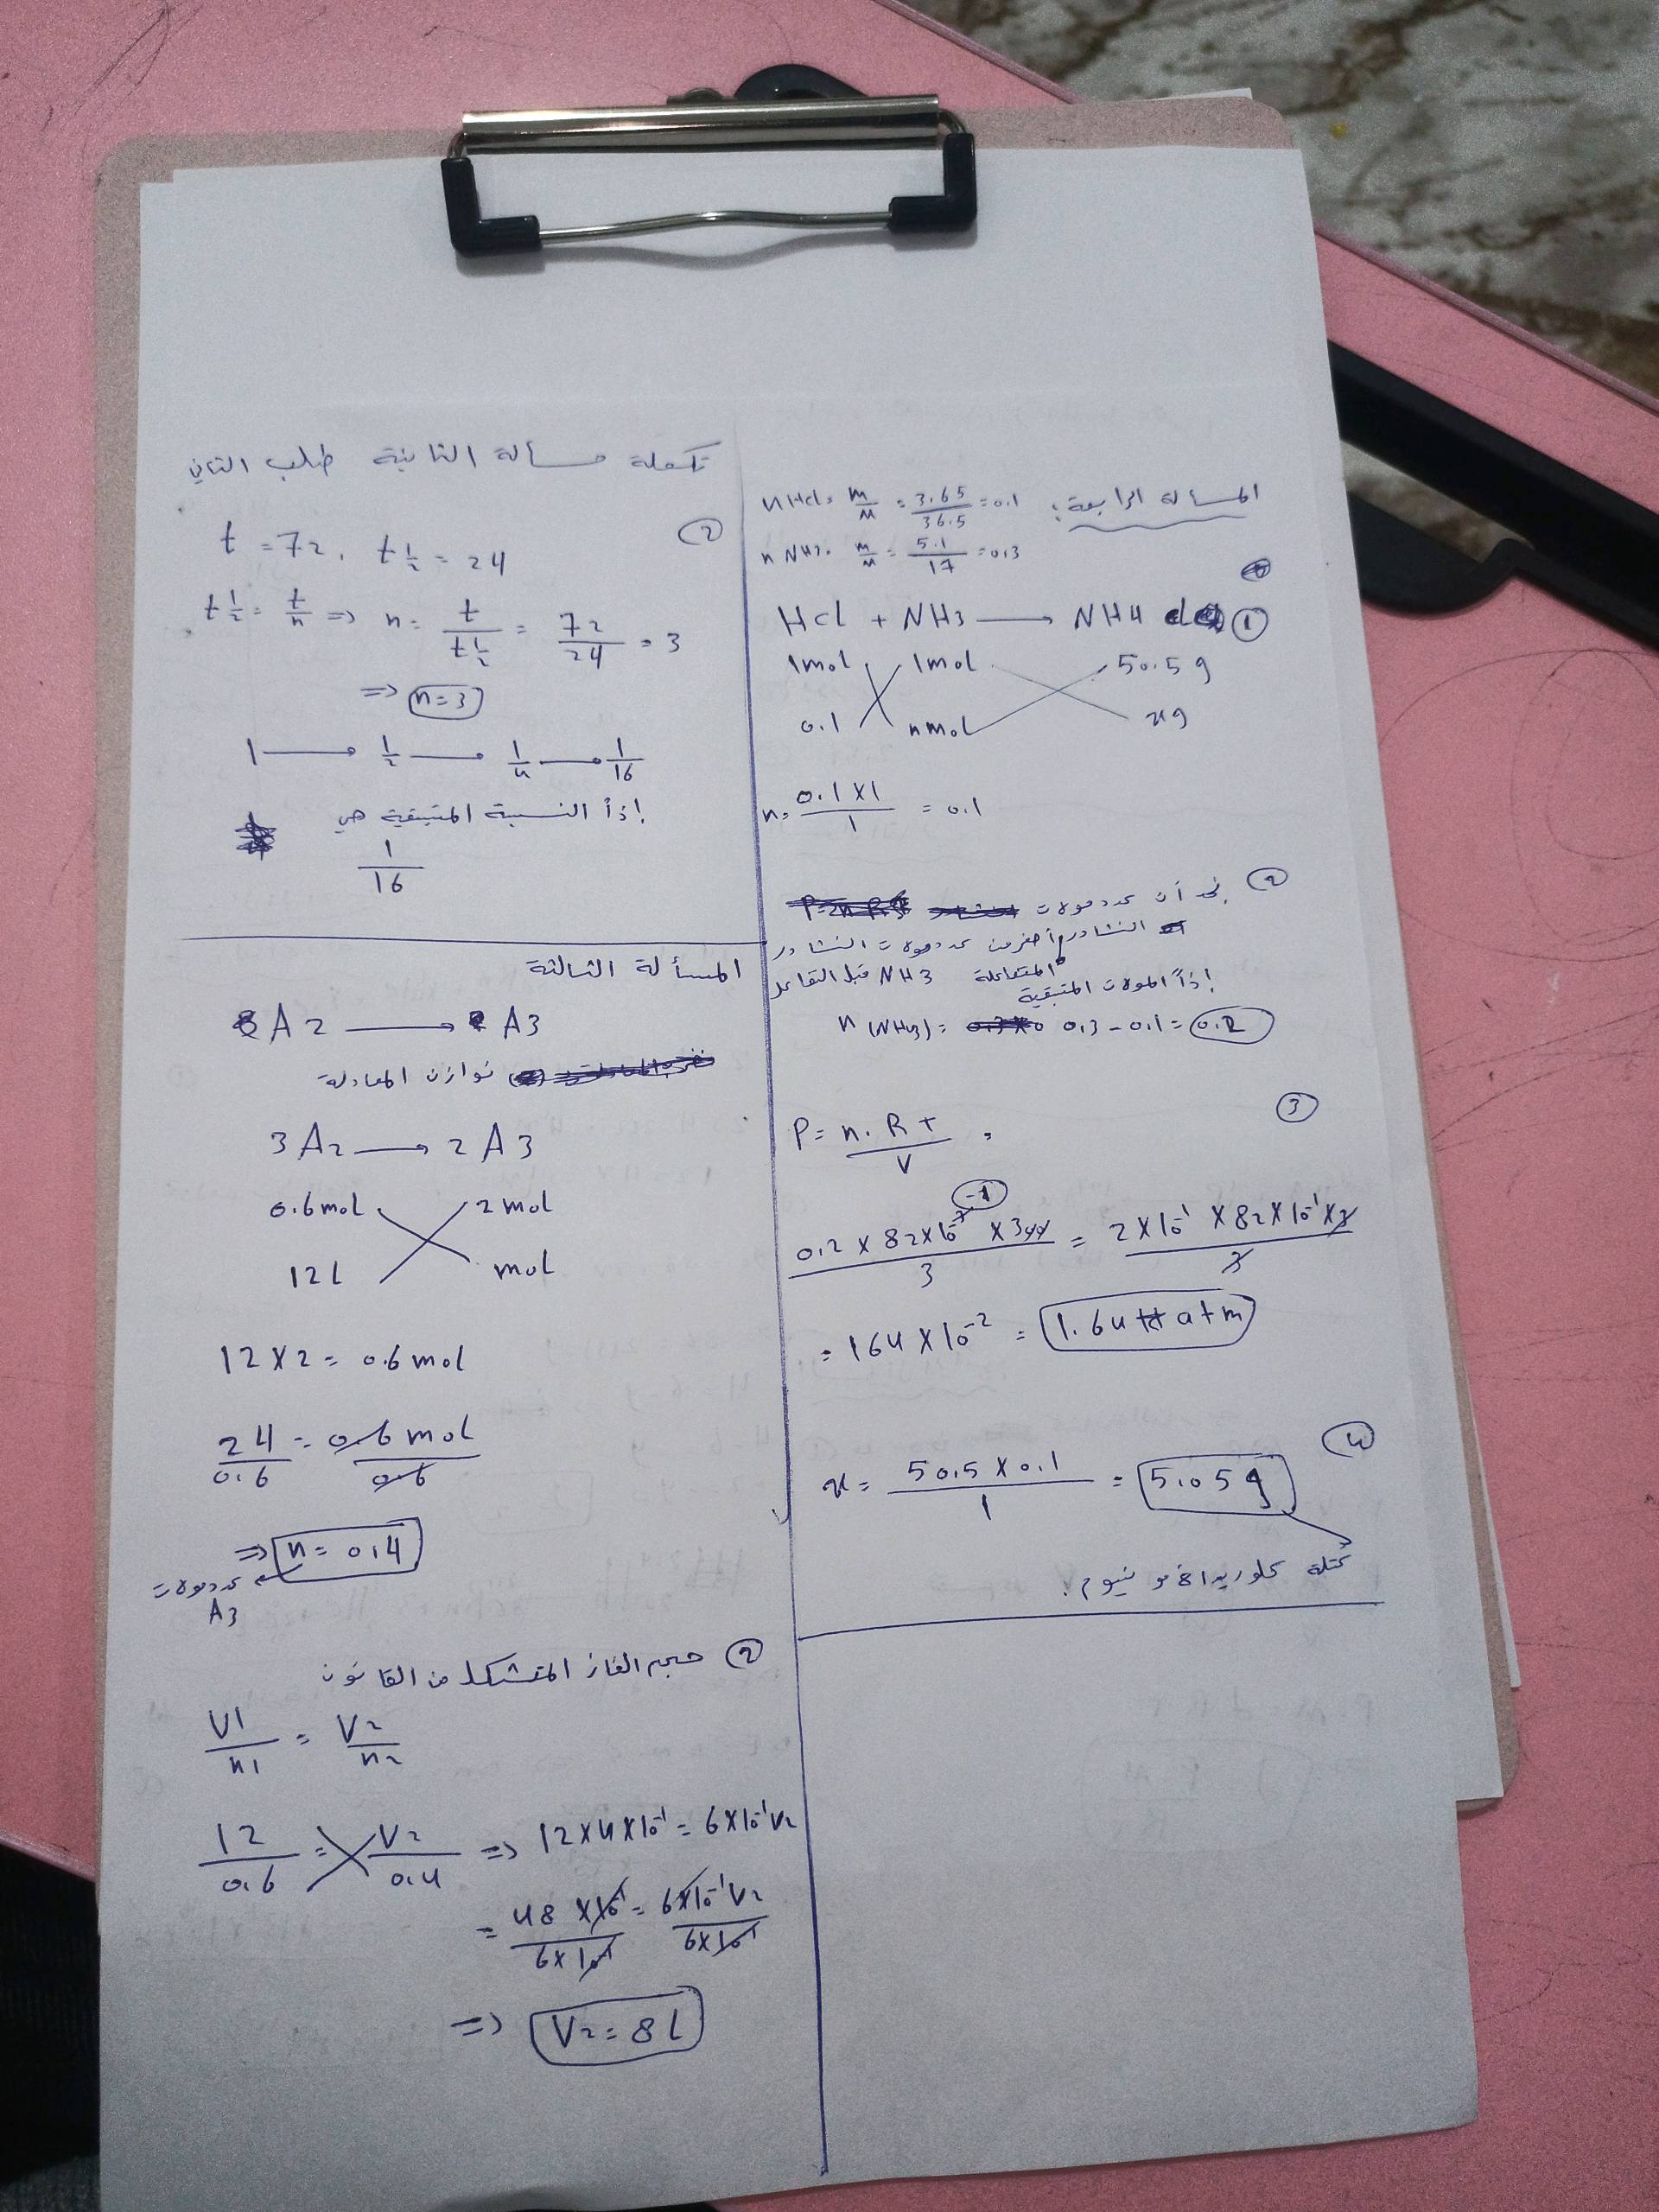 تكملة مسألة الثانية طلب الثاني
②
t = 72, t½ = 24
t½ = t/n => n = t/t½ = 72/24 = 3
=> n=3
1 → 1/2 → 1/4 → 1/16
إذاً النسبة المتبقية هي
1/16
المسألة الثالثة
A2 → A3
نوازن المعادلة
3A2 → 2A3
0.6mol 2mol
12L mol
12X2 = 0.6mol
24/0.6 = 0.6mol/0.6
=> n = 0,4
عدد مولات
A3
② حجم الغاز المتشكل من القانون
V1/n1 = V2/n2
12/0.6 = V2/0.4 => 12X4X10⁻¹ = 6X10⁻¹V2
= 48X10⁻¹/6X10⁻¹ = 6X10⁻¹V2/6X10⁻¹
=> V2 = 8L
المسألة الرابعة:
nHCl = m/M = 3.65/36.5 = 0.1
nNH3 = m/M = 5.1/17 = 0,3
①
HCl + NH3 → NH4Cl
1mol 1mol 50.5g
0.1 nmol xg
n = 0.1X1/1 = 0.1
② نجد أن عدد مولات
النشادر أصغر من عدد مولات النشادر
المتفاعلة NH3 قبل التفاعل
إذاً المولات المتبقية
n(NH3) = 0,3 - 0.1 = 0.2
③
P = n.RT/V =
0,2 X 82X10⁻¹ X 300/3 = 2X10⁻¹ X 82X10⁻¹X3/3
= 164X10⁻² = 1.64 atm
④
x = 50.5X0.1/1 = 5.05g
كتلة كلوريد الأمونيوم.